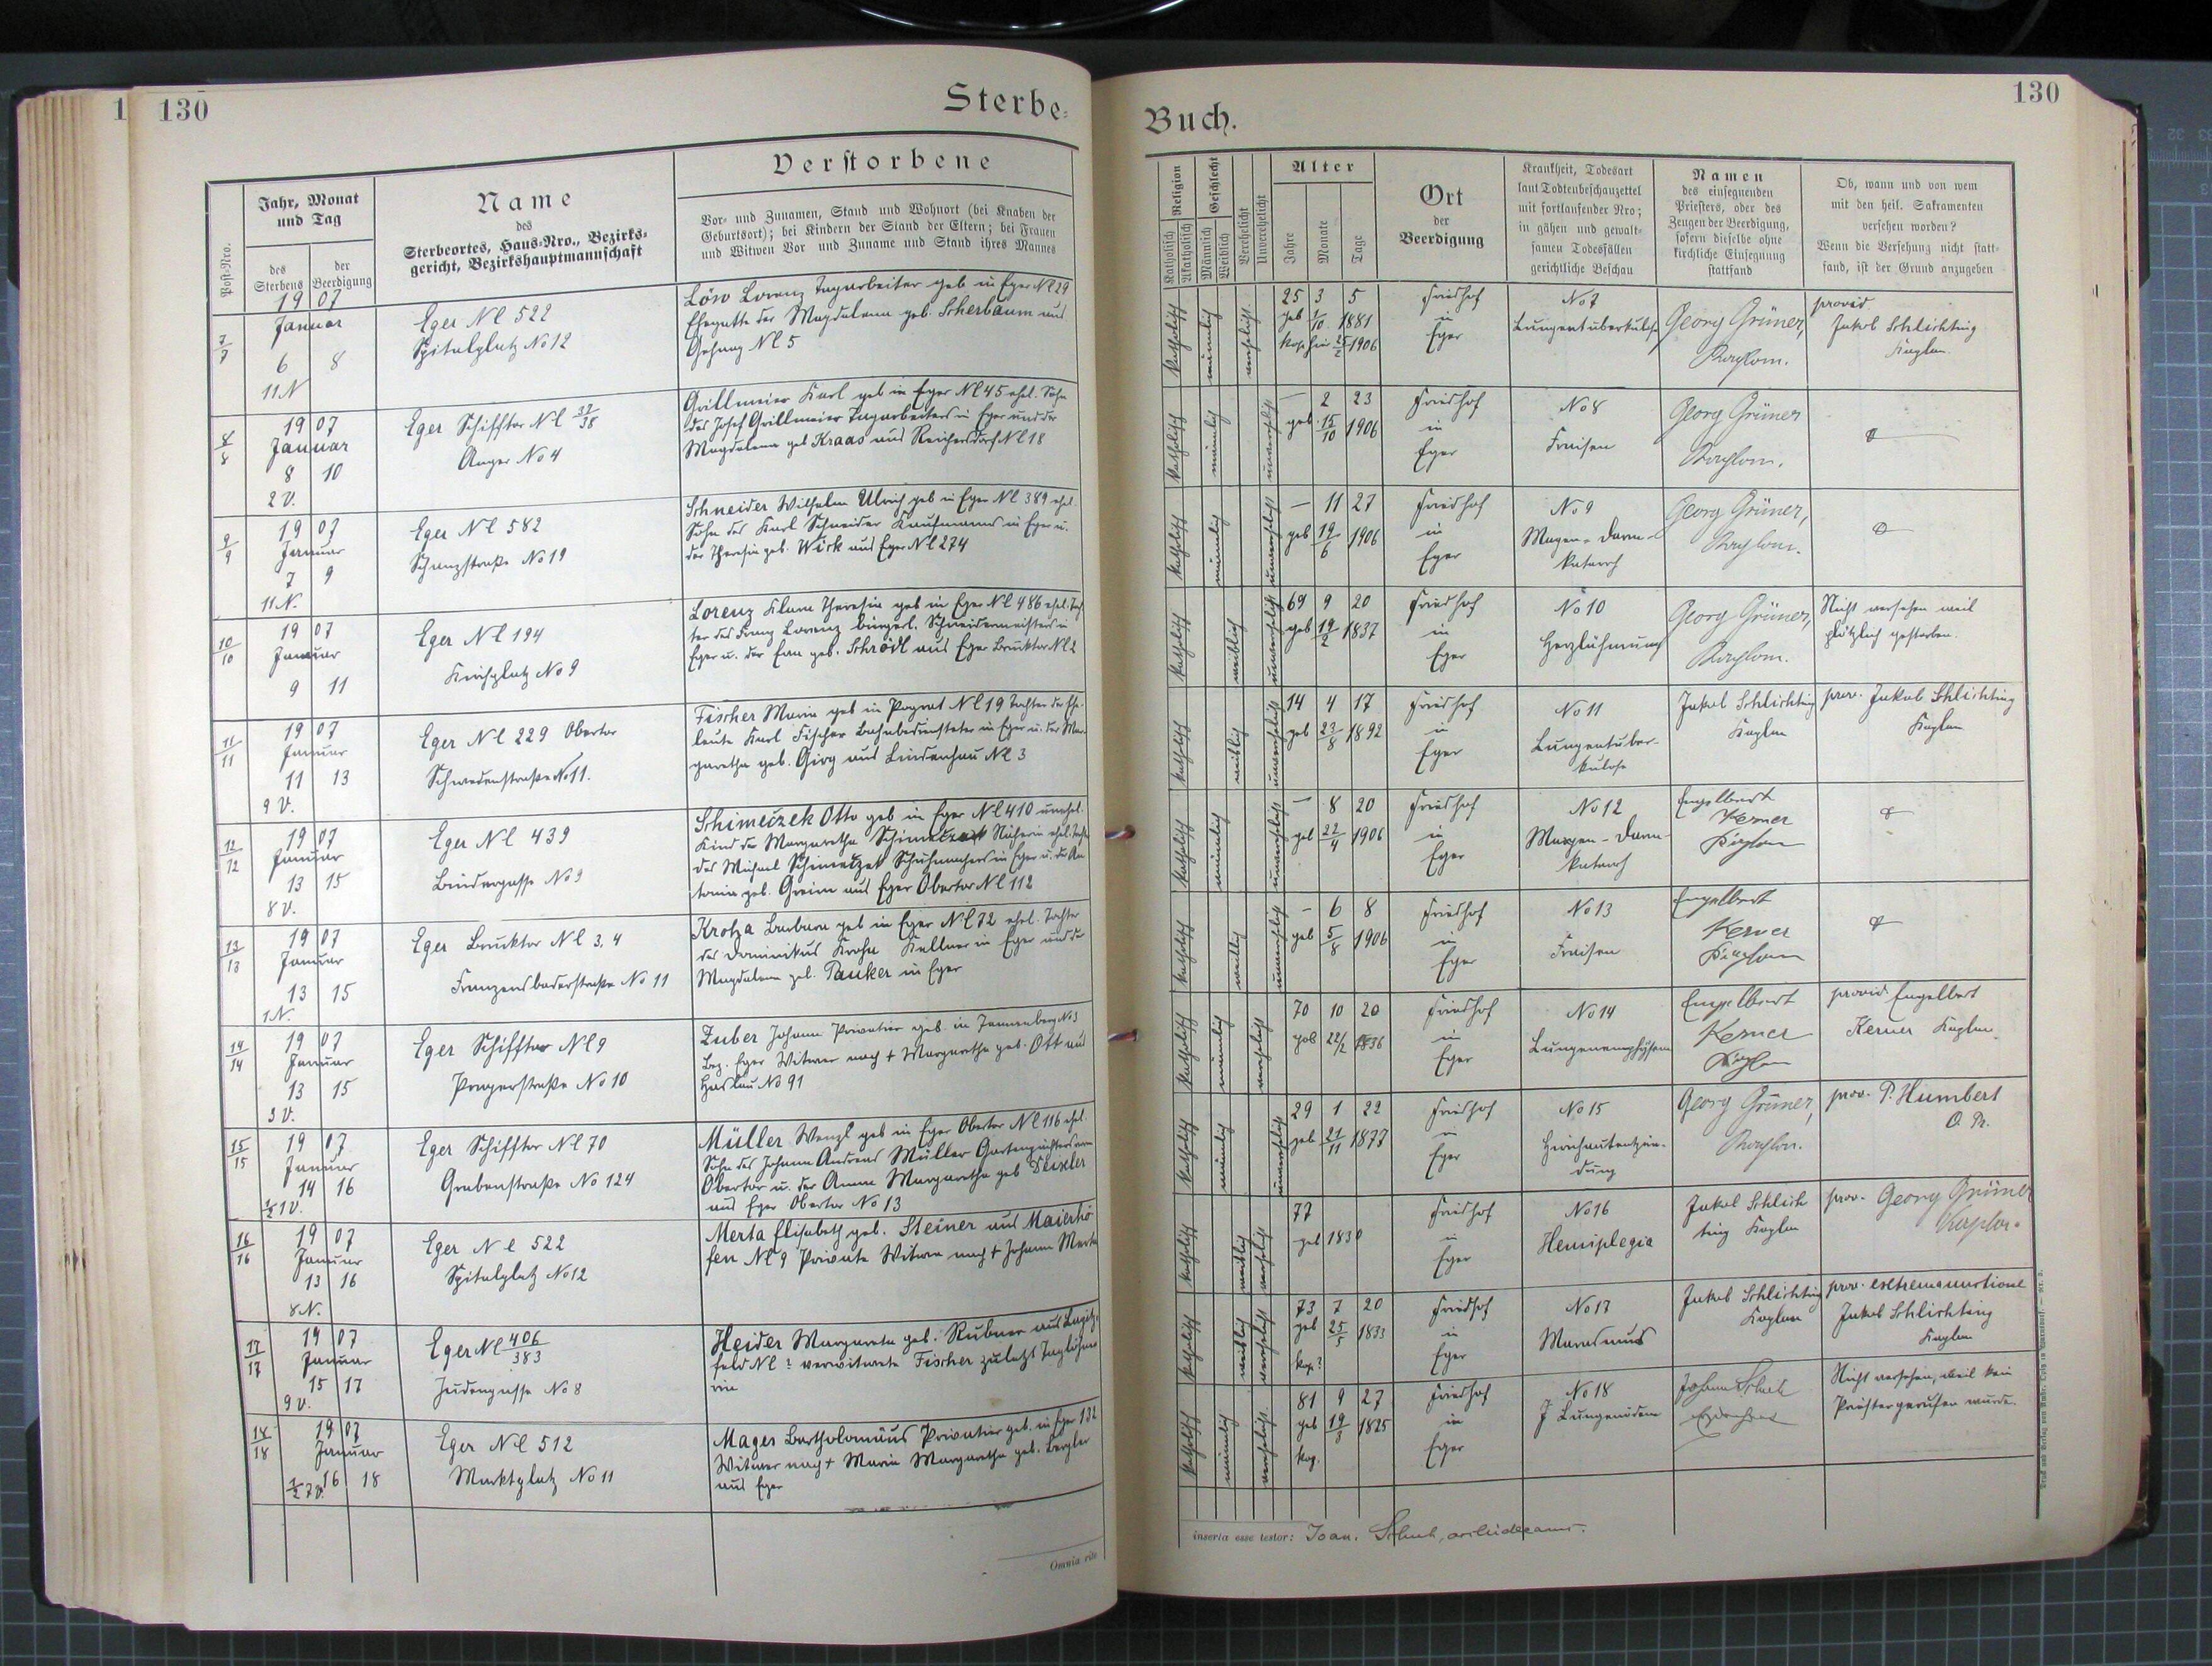 130
Sterbe-
Jahr, Monat
und Tag
Name
des
Sterbeortes, Haus-Nro., Bezirks-
gericht, Bezirkshauptmannschaft
Verstorbene
Vor- und Zunamen, Stand und Wohnort (bei Knaben der
Geburtsort); bei Kindern der Stand der Eltern; bei Frauen
und Witwen Vor und Zuname und Stand ihres Mannes
Post-Nro.
des
Sterbens
der
Beerdigung
7/7
1907
Januar
6 8
11 N
Eger Nc 522
Spitalplatz No 12
Löw Lorenz Tagarbeiter geb in Eger Nc 29
Ehegatte der Magdalena geb. Scherbaum aus
Gehaag Nc 5
8/8
1907
Januar
8 10
2 V.
Eger Schifftor Nc 37/38
Anger No 4
Grillmeier Karl geb in Eger Nc 45 ehel. Sohn
des Josef Grillmeier Tagarbeiters in Eger und der
Magdalena geb Kraas aus Reichersdorf Nc 18
9/9
1907
Januar
7 9
11 N.
Eger Nc 582
Schanzstraße No 19
Schneider Wilhelm Ulrich geb in Eger Nc 389 ehel.
Sohn des Karl Schneider Kaufmanns in Eger u.
der Theresia geb. Wirk aus Eger Nc 274
10/10
1907
Januar
9 11
Eger Nc 194
Kirchplatz No 9
Lorenz Klara Theresia geb in Eger Nc 486 ehel. Toch
ter des Franz Lorenz bürgerl. Schneidermeisters in
Eger u. der Eva geb. Schrödl aus Eger Brucktor Nc 2
11/11
1907
Januar
11 13
9 V.
Eger Nc 229 Obertor
Schwedenstraße No 11.
Fischer Maria geb in Pograt Nc 19 Tochter der Ehe-
leute Karl Fischer Bahnbediensteter in Eger u. der Mar-
garetha geb. Girg aus Lindenhau Nc 3
12/12
1907
Januar
13 15
8 V.
Eger Nc 439
Bindergasse No 9
Schimeczek Otto geb in Eger Nc 410 unehel.
Kind der Margaretha Schimeczek Näherin ehel. Tochter
des Michael Schimeczek Schuhmachers in Eger u. der An
tonia geb. Greim aus Eger Obertor Nc 112
13/13
1907
Januar
13 15
1 N.
Eger Brucktor Nc 3, 4
Franzensbaderstraße No 11
Kroha Barbara geb in Eger Nc 72 ehel. Tochter
des Dominikus Kroha Kellner in Eger und der
Magdalena geb. Pauker in Eger
14/14
1907
Januar
13 15
3 V.
Eger Schifftor Nc 9
Pragerstraße No 10
Zuber Johann Privatier geb. in Tannenberg No 3
Bez. Eger Witwer nach + Margaretha geb. Ott aus
Haslau No 91
15/15
1907
Januar
14 16
1/2 1 V.
Eger Schifftor Nc 70
Grabenstraße No 124
Müller Wenzl geb in Eger Obertor Nc 116 ehel.
Sohn des Johann Andreas Müller Gartenpächters am
Obertor u. der Anna Margaretha geb Deisler
aus Eger Obertor No 13
16/16
1907
Januar
13 16
8 N.
Eger Nc 522
Spitalplatz No 12
Merta Elisabeth geb. Steiner aus Maierhö
fen Nc 9 Private Witwe nach + Johann Merta
17/17
1907
Januar
15 17
9 V.
Eger Nc 406/383
Judengasse No 8
Heider Margareta geb. Rubner aus
feld Nc ? verwitwete Fischer zuletzt Taglöhne
rin
18/18
1907
Januar
16 18
1/2 7 V.
Eger Nc 512
Marktplatz No 11
Mager Bartholomäus Privatier geb. in Eger 132
Witwer nach + Maria Margaretha geb. Bergler
aus Eger
Omnia rite
130
Buch.
Religion
Katholisch
Akatholisch
Geschlecht
Männlich
Weiblich
Verehelicht
Unverehelicht
Alter
Jahre
Monate
Tage
Ort
der
Beerdigung
Krankheit, Todesart
laut Todtenbeschauzettel
mit fortlaufender Nro;
in gähen und gewalt-
samen Todesfällen
gerichtliche Beschau
Namen
des einsegnenden
Priesters, oder des
Zeugen der Beerdigung,
sofern dieselbe ohne
kirchliche Einsegnung
stattfand
Ob, wann und von wem
mit den heil. Sakramenten
versehen worden?
Wenn die Versehung nicht statt-
fand, ist der Grund anzugeben
katholisch
männlich
verehelicht
25 3 5
geb 1/10 1881
1906
Friedhof
in
Eger
No 7
Lungentuberkulose
Georg Grüner,
Kaplan.
provid.
Jakob Schlichting
Kaplan
katholisch
männlich
unverehelicht
— 2 23
geb. 15/10 1906
Friedhof
in
Eger
No 8
Fraisen
Georg Grüner
Kaplan.
katholisch
männlich
unverehelicht
— 11 27
geb 19/6 1906
Friedhof
in
Eger
No 9
Magen-Darm-
katarrh
Georg Grüner,
Kaplan.
katholisch
weiblich
unverehelicht
69 9 20
geb 1837
Friedhof
in
Eger
No 10
Herzlähmung
Georg Grüner,
Kaplan.
Nicht versehen weil
plötzlich gestorben.
katholisch
weiblich
unverehelicht
14 4 17
geb 23/8 1892
Friedhof
in
Eger
No 11
Lungentuber-
kulose
Jakob Schlichting
Kaplan
prov. Jakob Schlichting
Kaplan
katholisch
männlich
unverehelicht
— 8 20
geb 22/4 1906
Friedhof
in
Eger
No 12
Magen-Darm-
katarrh
Engelbert
Kerner
Kaplan
katholisch
weiblich
unverehelicht
— 6 8
geb 5/8 1906
Friedhof
in
Eger
No 13
Fraisen
Engelbert
Kerner
Kaplan
katholisch
männlich
verehelicht
70 10 20
geb 22/2 1836
Friedhof
in
Eger
No 14
Lungenemphysem
Engelbert
Kerner
Kaplan
provid. Engelbert
Kerner Kaplan
katholisch
männlich
unverehelicht
29 1 22
geb 21/11 1877
Friedhof
in
Eger
No 15
Hirnhautentzün-
dung
Georg Grüner,
Kaplan.
prov. P. Humbert
O. Pr.
katholisch
weiblich
verehelicht
77
geb 1830
Friedhof
in
Eger
No 16
Hemiplegia
Jakob Schlich
ting Kaplan
prov. Georg Grüner
Kaplan.
katholisch
weiblich
verehelicht
73 7 20
geb 25/5 1833
kop?
Friedhof
in
Eger
No 17
Marasmus
Jakob Schlichting
Kaplan
prov. extrema unctione
Jakob Schlichting
Kaplan
katholisch
männlich
verehelicht
81 9 27
geb 19/3 1825
kop.
Friedhof
in
Eger
No 18
Lungenödem
Johann Schuh
Erzdechant
Nicht versehen, weil kein
Priester gerufen wurde.
inserta esse testor: Joan. Schuh, archidecanus.